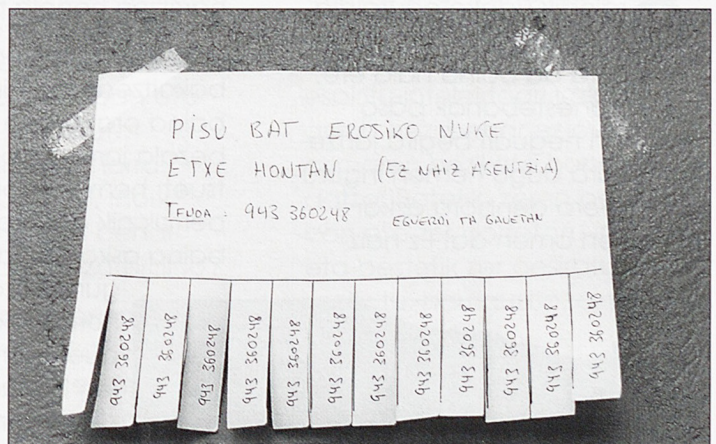 PISU BAT EROSIKO NUKE
ETXE HONTAN (EZ NAIZ AGENTZIA)
TFNOA: 943 360248 EGUERDI TA GAUETAN
943 360248
943 360248
943 360248
943 360248
943 360248
943 360248
943 360248
943 360248
943 360248
943 360248
943 360248
943 360248